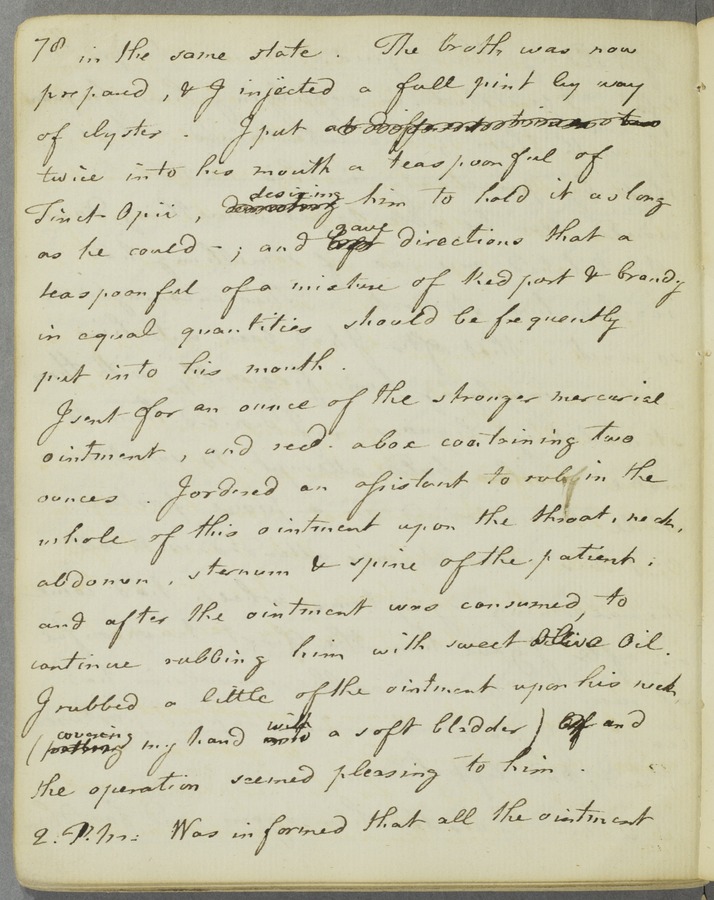 78 in the same state. The broth was now
prepared, & I injected a full pint by way
of clyster. I put at different times two
twice into his mouth a teaspoonful of
Tinct. Opii, desiring him to hold it as long
as he could-; and gave directions that a
teaspoonful of a mixture of Red port & brandy
in equal quantities should be frequently
put into his mouth.
I sent for an ounce of the stronger mercurial
ointment, and recd. a box containing two
ounces. I ordered an assistant to rub in the
whole of this ointment upon the throat, neck,
abdomen, sternum & spine of the patient;
and after the ointment was consumed, to
continue rubbing him with sweet Olive Oil.
I rubbed a little of the ointment upon his neck
(covering my hand with a soft bladder) and
the operation seemed pleasing to him.
2. P.M: Was informed that all the ointment